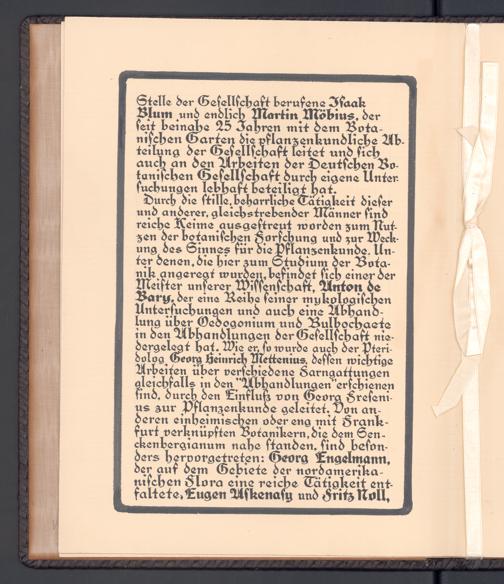 Stelle der Gesellschaft berufene Isaak
Blum und endlich Martin Möbius, der
seit beinahe 25 Jahren mit dem Bota-
nischen Garten die pflanzenkundliche Ab-
teilung der Gesellschaft leitet und sich
auch an den Arbeiten der Deutschen Bo-
tanischen Gesellschaft durch eigene Unter-
suchungen lebhaft beteiligt hat.
Durch die stille, beharrliche Tätigkeit dieser
und anderer, gleichstrebender Männer sind
reiche Keime ausgestreut worden zum Nut-
zen der botanischen Forschung und zur Weck-
ung des Sinnes für die Pflanzenkunde. Un-
ter denen, die hier zum Studium der Bota-
nik angeregt wurden, befindet sich einer der
Meister unserer Wissenschaft, Anton de
Bary, der eine Reihe seiner mykologischen
Untersuchungen und auch eine Abhand-
lung über Oedogonium und Bulbochaete
in den Abhandlungen der Gesellschaft nie-
dergelegt hat. Wie er, so wurde auch der Pteri-
dolog Georg Heinrich Mettenius, dessen wichtige
Arbeiten über verschiedene Farngattungen
gleichfalls in den "Abhandlungen" erschienen
sind, durch den Einfluß von Georg Freseni-
us zur Pflanzenkunde geleitet. Von an-
deren einheimischen oder eng mit Frank-
furt verknüpften Botanikern, die dem Sen-
ckenbergianum nahe standen, sind beson-
ders hervorgetreten: Georg Engelmann,
der auf dem Gebiete der nordamerika-
nischen Flora eine reiche Tätigkeit ent-
faltete, Eugen Askenasy und Fritz Noll,